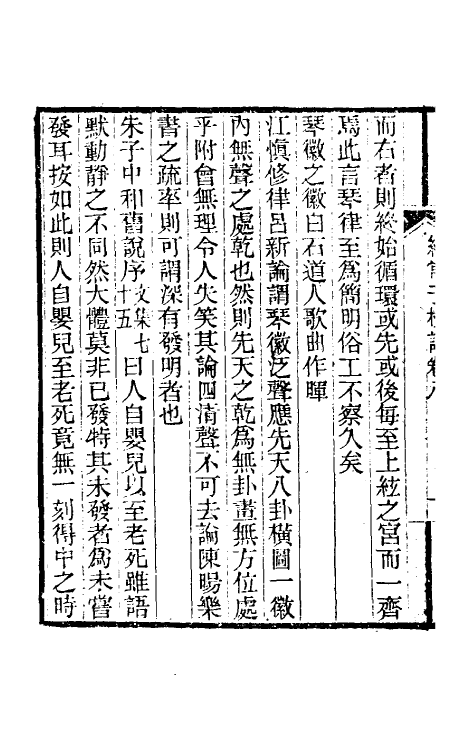 而右者則終始循環或先或後每至上絃之宮而一齊
焉此言琴律至為簡明俗工不察久矣
琴徽之徽白石道人歌曲作暉
江慎修律呂新論謂琴徽泛聲應先天八卦橫圖一徽
內無聲之處乾也然則先天之乾為無卦畫無方位處
乎附會無理令人失笑其論四清聲不可去論陳暘樂
書之疏率則可謂深有發明者也
朱子中和舊說序文集七十五曰人自嬰兒以至老死雖語
默動靜之不同然大體莫非已發特其未發者為未嘗
發耳按如此則人自嬰兒至老死竟無一刻得中之時